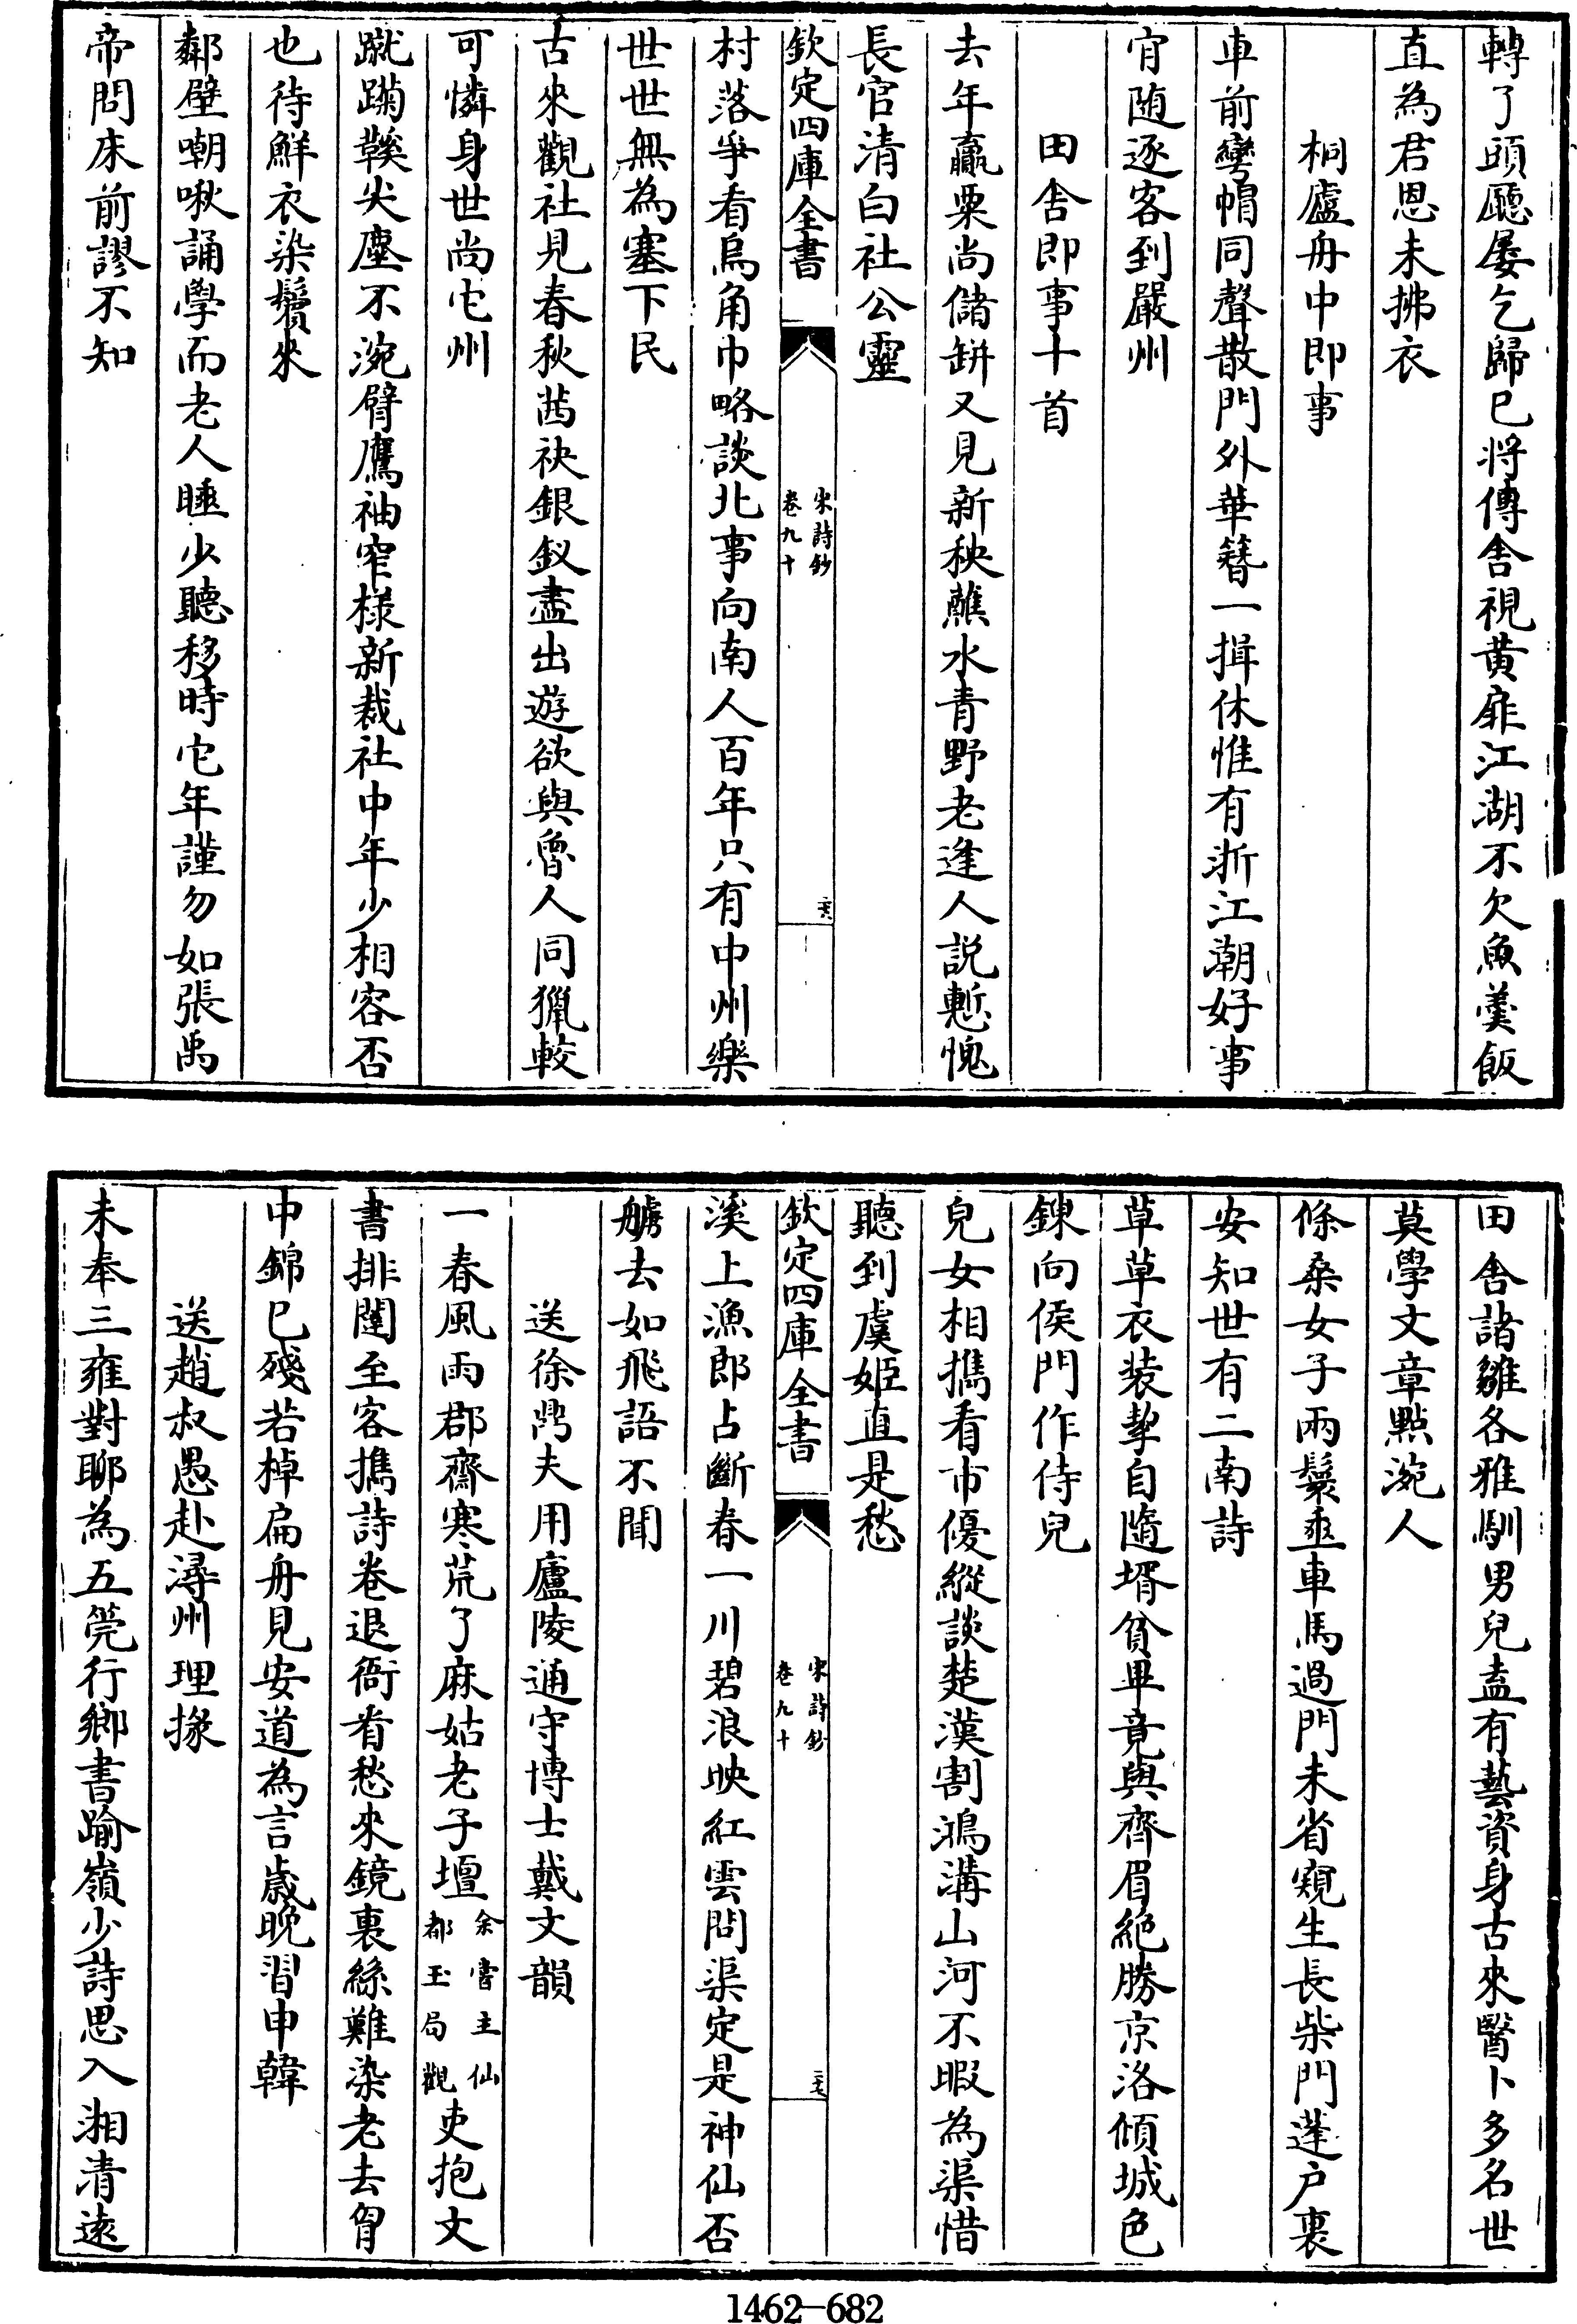 轉了頭廳屡乞歸已將傳舎視黄扉江湖不欠魚羮飯
直為君恩未拂衣
桐廬舟中即事
車前彎帽同聲散門外華簪一揖休惟有浙江潮好事
宵随逐客到嚴州
田舎即事十首
去年贏粟尚儲缾又見新秧蘸水青野老逢人説慙愧
長官清白社公靈
欽定四庫全書
宋詩鈔
卷九十
二六
村落爭看烏角巾略談北事向南人百年只有中州樂
世世無為塞下民
古來觀社見春秋茜袂銀釵盡出遊欲與魯人同獵較
可憐身世尚它州
蹴踘鞵尖塵不涴臂鷹袖窄様新裁社中年少相容否
也待鮮衣染鬢來
鄰壁嘲啾誦學而老人睡少聽移時它年謹勿如張禹
帝問床前謬不知
田舎諸雛各雅馴男兒盍有藝資身古來醫卜多名世
莫學文章點涴人
條桑女子兩鬟垂車馬過門未省窺生長柴門蓬户裏
安知世有二南詩
草草衣装挈自隨壻貧畢竟與齊眉絶勝京洛傾城色
鍊向侯門作侍兒
兒女相攜看市優縱談楚漢割鴻溝山河不暇為渠惜
聽到虞姬直是愁
欽定四庫全書
宋詩鈔
卷九十
二七
溪上漁郎占斷春一川碧浪映紅雲問渠定是神仙否
艣去如飛語不聞
送徐鼎夫用廬陵通守博士戴文韻
一春風雨郡齋寒荒了麻姑老子壇余嘗主仙都玉局觀吏抱文
書排闥至客攜詩卷退衙㸔愁來鏡裏絲難染老去胷
中錦已殘若棹扁舟見安道為言歳晩習申韓
送趙叔愚赴潯州理掾
未奉三雍對聊為五筦行鄉書踰嶺少詩思入湘清逺
1462-682